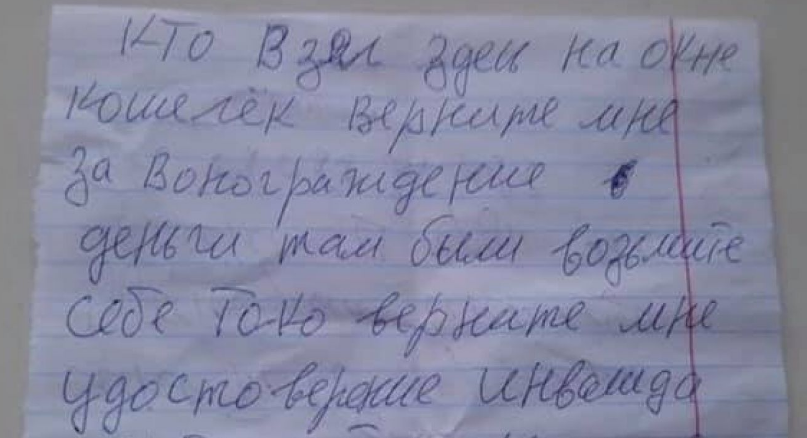 кто взял здеш на окне
кошелёк верните мне
за воногрждение
деньги там были возьмите
себе токо верните мне
удостоверние инвалида